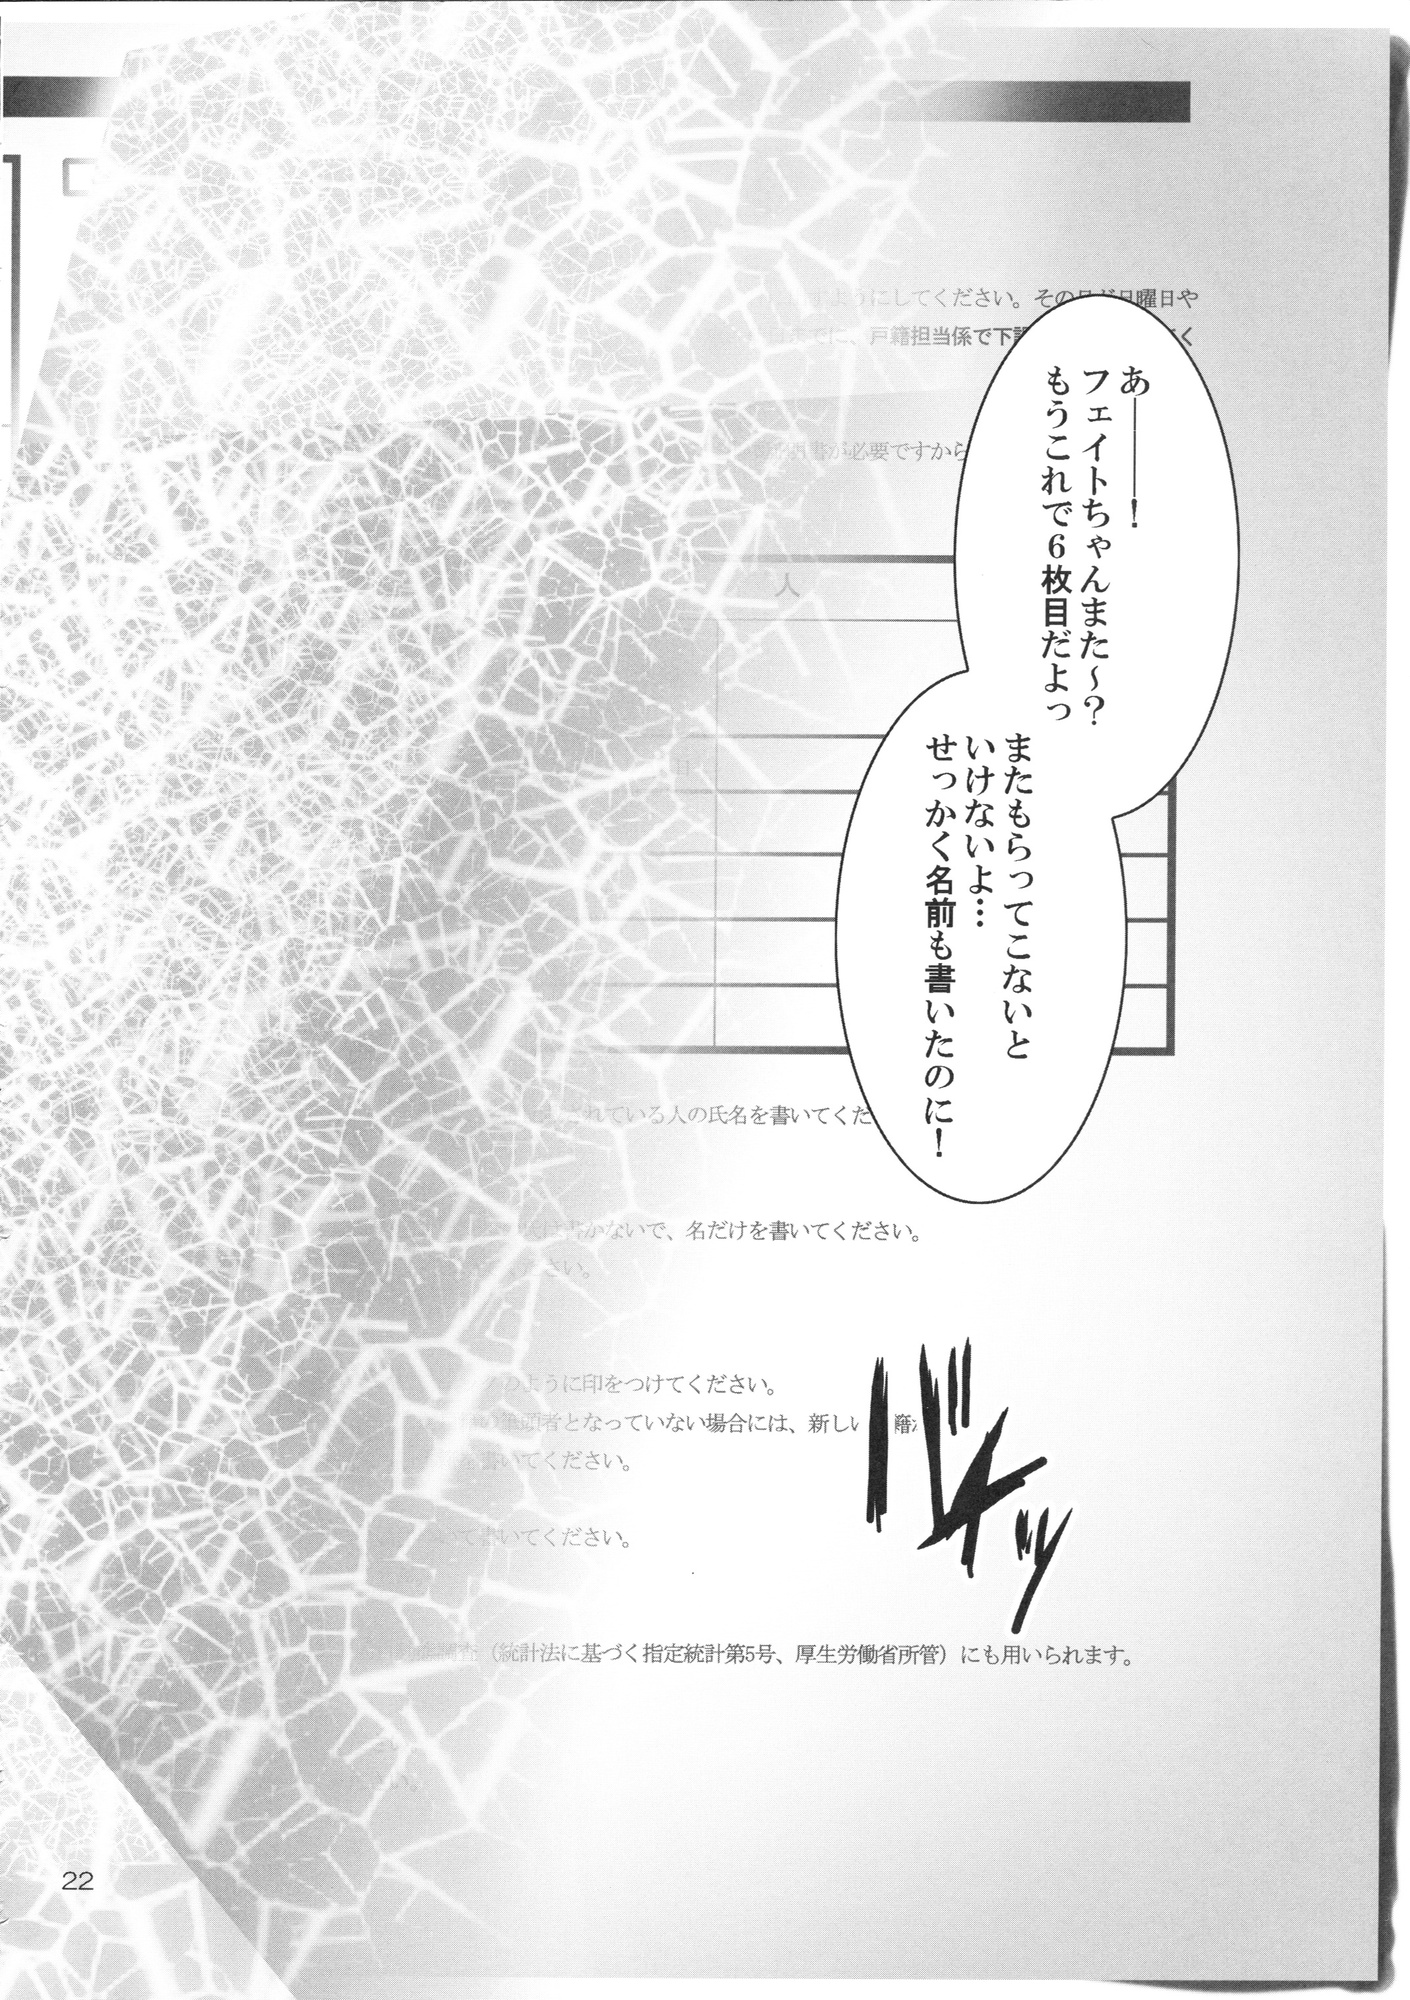 あ――――！
フェイトちゃんまた～？
もうこれで６枚目だよっ
またもらってこないと
いけないよ…
せっかく名前も書いたのに！
ようにしてください。その
日曜日や
戸籍担当係で下
く
書が必要ですから
人
されている人の氏名を書いてくだ
書かないで、名だけを書いてください。
さい。
のように印をつけてください。
筆頭者となっていない場合には、新しい
書いてください。
いて書いてください。
調査（統計法に基づく指定統計第5号、厚生労働省所管）にも用いられます。
い。
バッ
22